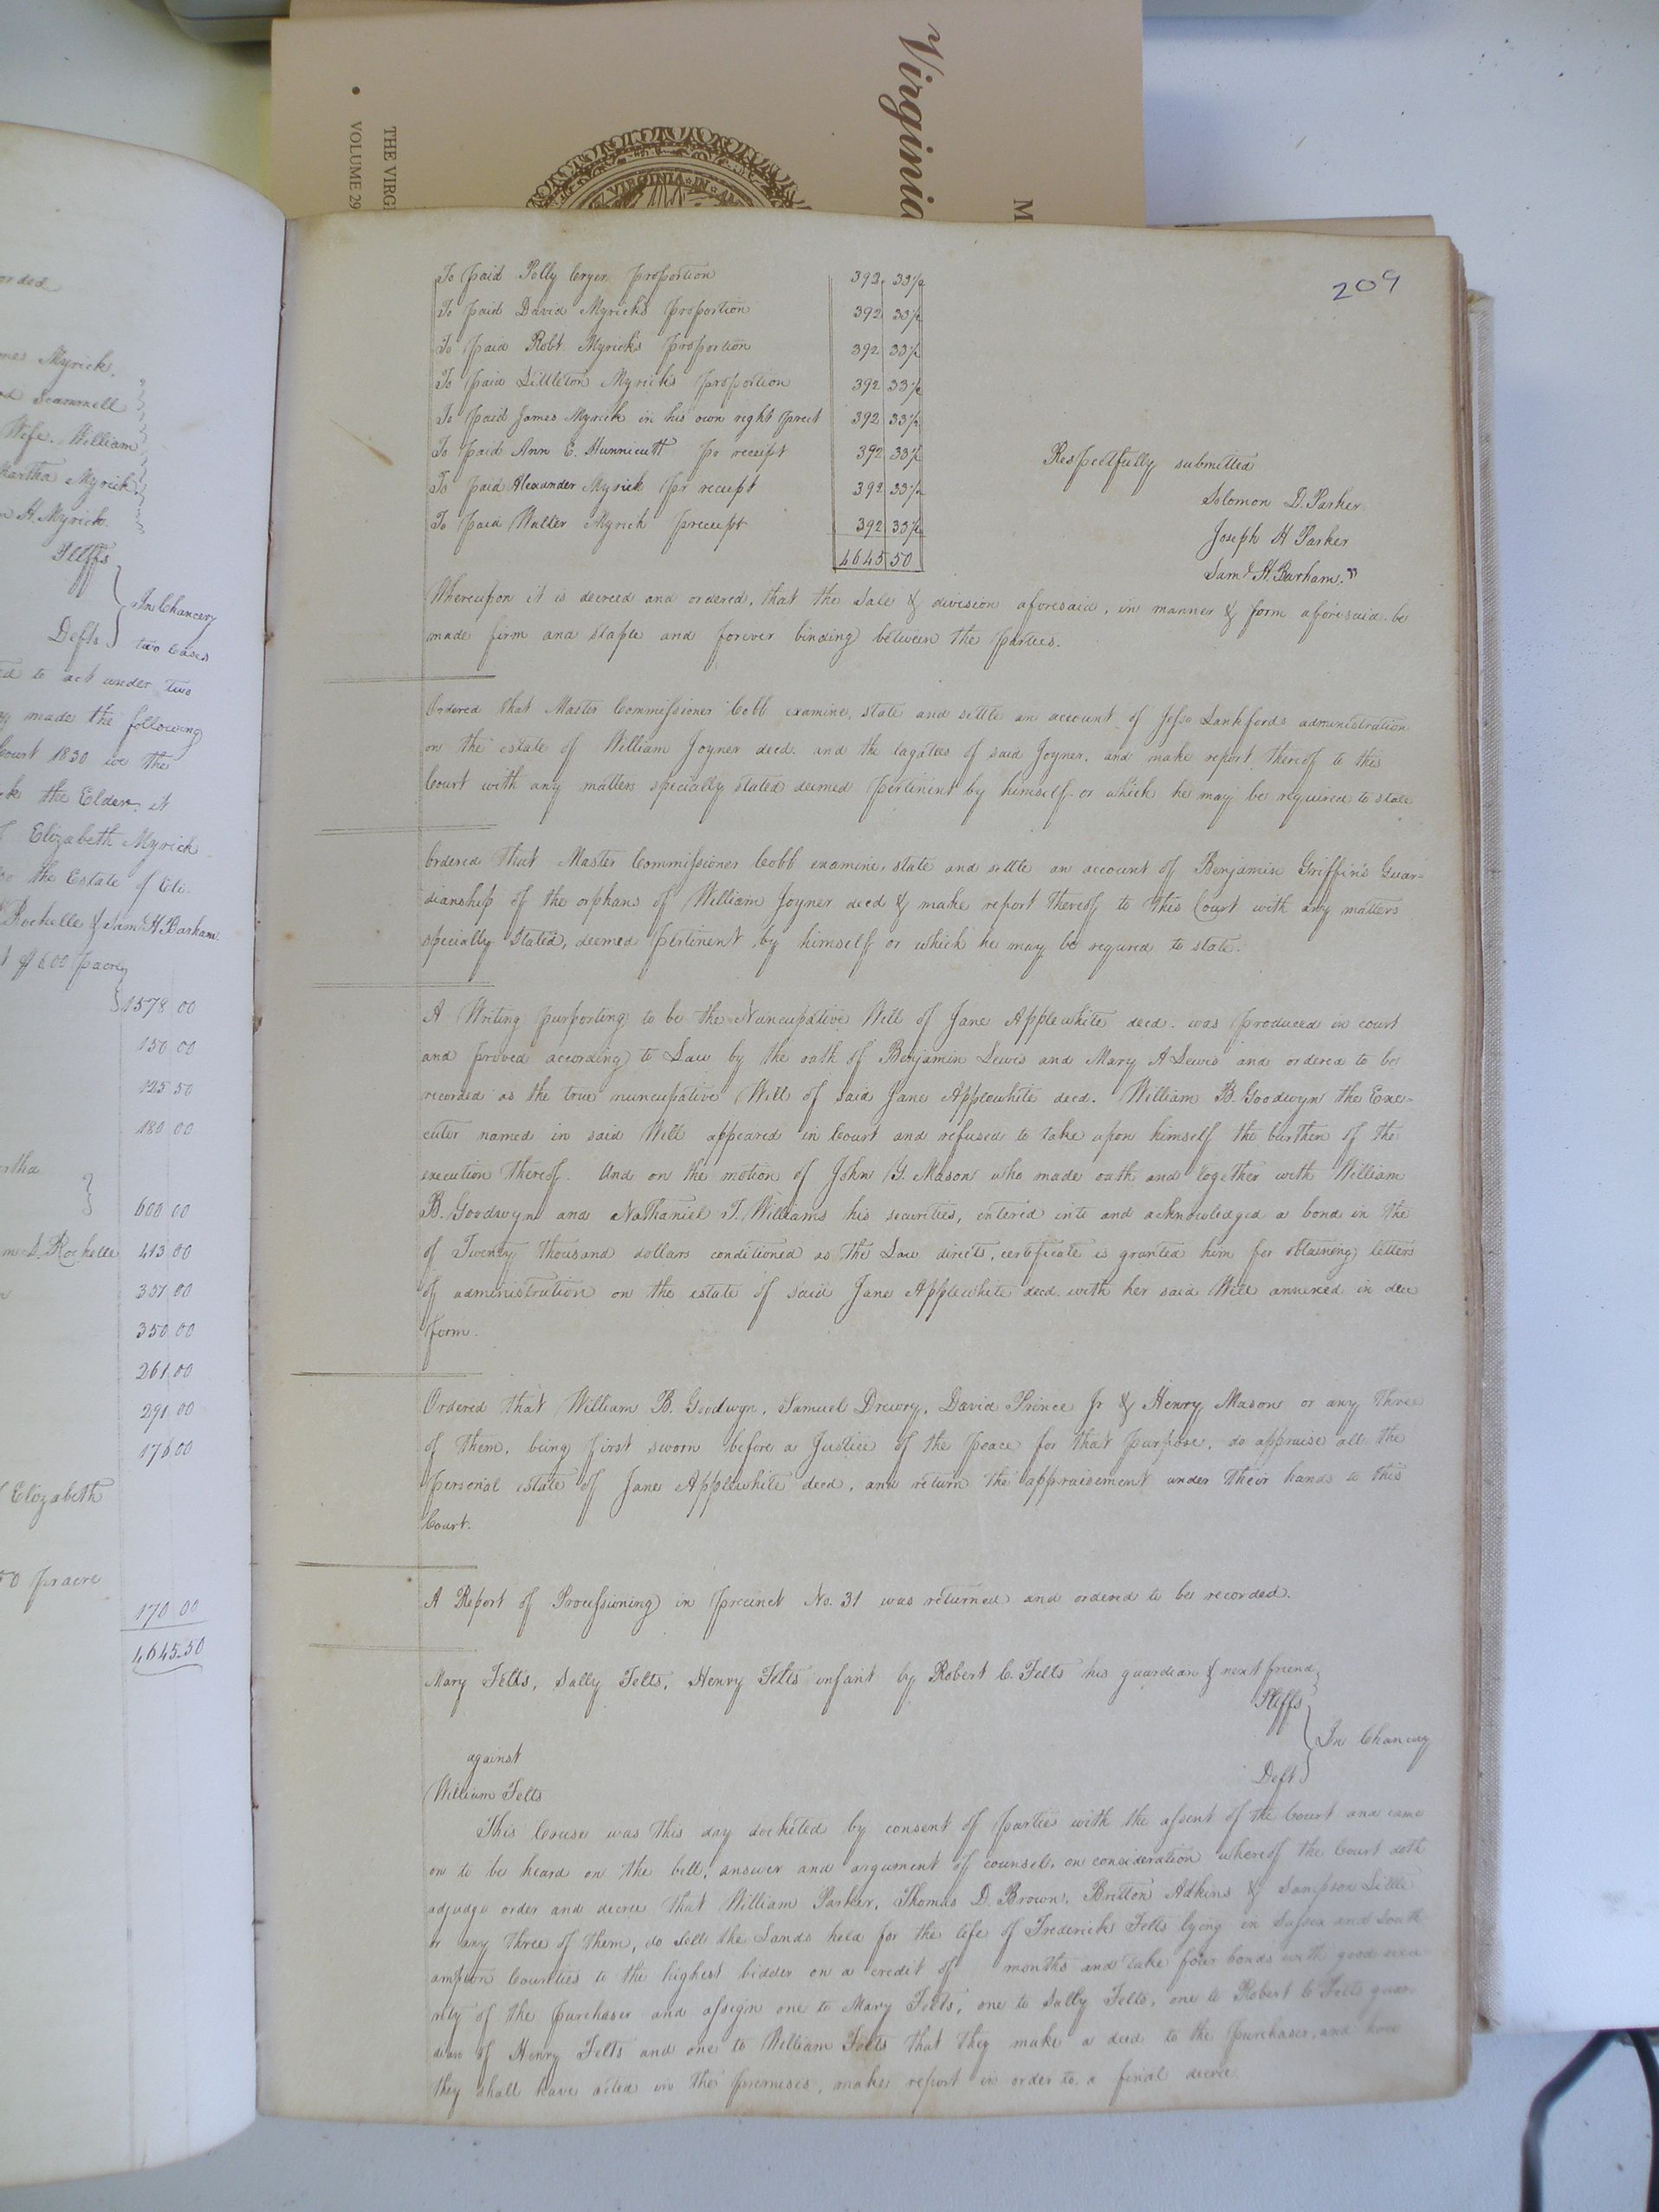 Virginia
M
THE VIRG
VOLUME 29
VIRGINIA IN
209
To paid Polly Cryer proportion 392 33½
To paid David Myrick's proportion 392 33½
To paid Robt. Myrick's proportion 392 33½
To paid Littleton Myrick's proportion 392 33½
To paid James Myrick in his own right prect 392 33½
To paid Ann E. Hunnicutt pr receipt 392 33½
To paid Alexander Myrick pr receipt 392 33½
To paid Walter Myrick preceipt 392 33½
4645 50
Respectfully submitted
Solomon D. Parker
Joseph H Parker
Saml. H. Barham."
Whereupon it is decreed and ordered, that the Sale & division aforesaid, in manner & form aforesaid be
made firm and staple and forever binding between the parties.
Ordered that Master Commissioner Cobb examine, state and settle an account of Jesse Lankfords administration
on the estate of William Joyner decd. and the lagatees of said Joyner, and make report thereof to this
Court with any matters specially stated deemed pertinent by himself or which he may be required to state
Ordered that Master Commissioner Cobb examine, state and settle an account of Benjamin Griffin's Guar-
dianship of the orphans of William Joyner decd & make report thereof to this Court with any matters
specially stated, deemed pertinent by himself or which he may be requred to state.
A Writing purporting to be the Nuncupative Will of Jane Applewhite decd. was produced in court
and proved according to Law by the oath of Benjamin Lewis and Mary A Lewis and ordered to be
recorded as the true nuncupative Will of said Jane Applewhite decd. William B. Goodwyn the Exe-
cutor named in said Will appeared in Court and refused to take upon himself the burthen of the
execution thereof. And on the motion of John Y. Mason who made oath and together with William
B. Goodwyn and Nathaniel T. Williams his securities, entered into and acknowledged a bond in the
of Twenty thousand dollars conditioned as the Law directs, certificate is granted him for obtaining letters
of administration on the estate of said Jane Applewhite decd. with her said Will annexed in due
form.
Ordered that William B. Goodwyn, Samuel Drewry, David Prince Jr & Henry Mason or any three
of them, being first sworn before a Justice of the peace for that purpose, do appraise all the
personal estate of Jane Applewhite decd, and return the appraisement under their hands to this
Court.
A Report of Processioning in precinct No. 31 was returned and ordered to be recorded.
Mary Felts, Sally Felts, Henry Felts infant by Robert C. Felts his guardian & next friend
Pltffs
against
In Chancery
Deft
William Felts
This Cause was this day docketed by consent of parties with the assent of the Court and came
on to be heard on the bill, answer and argument of counsel, on consideration whereof the Court doth
adjudge order and decree that William Parker, Thomas D. Brown, Britton Adkins & Sampson Little
or any three of them, do sell the Lands held for the life of Frederick Felts lying in Sussex and South
ampton Counties to the highest bidder on a credit of months and take four bonds with good secu
rity of the purchaser and assign one to Mary Felts, one to Sally Felts, one to Robert C Felts guar
dian of Henry Felts and one to William Felts that they make a deed to the purchaser, and how
they shall have acted in the premises, make report in order to a final decree.
orded
mes Myrick
Scammell
Wife. William
Martha Myrick
H. Myrick
Pltffs
In Chancery
Defts
two Cases
to act under two
made the following
Court 1830 we the
the Elder, it
Elizabeth Myrick
the Estate of Eli-
Rochelle & Saml H Barham
600 pacre
1578 00
150 00
125 50
180 00
rtha
600 00
L. Rochelle 413 00
351 00
350 00
261 00
291 00
176 00
Elizabeth
50 pr acre
170 00
4645.50